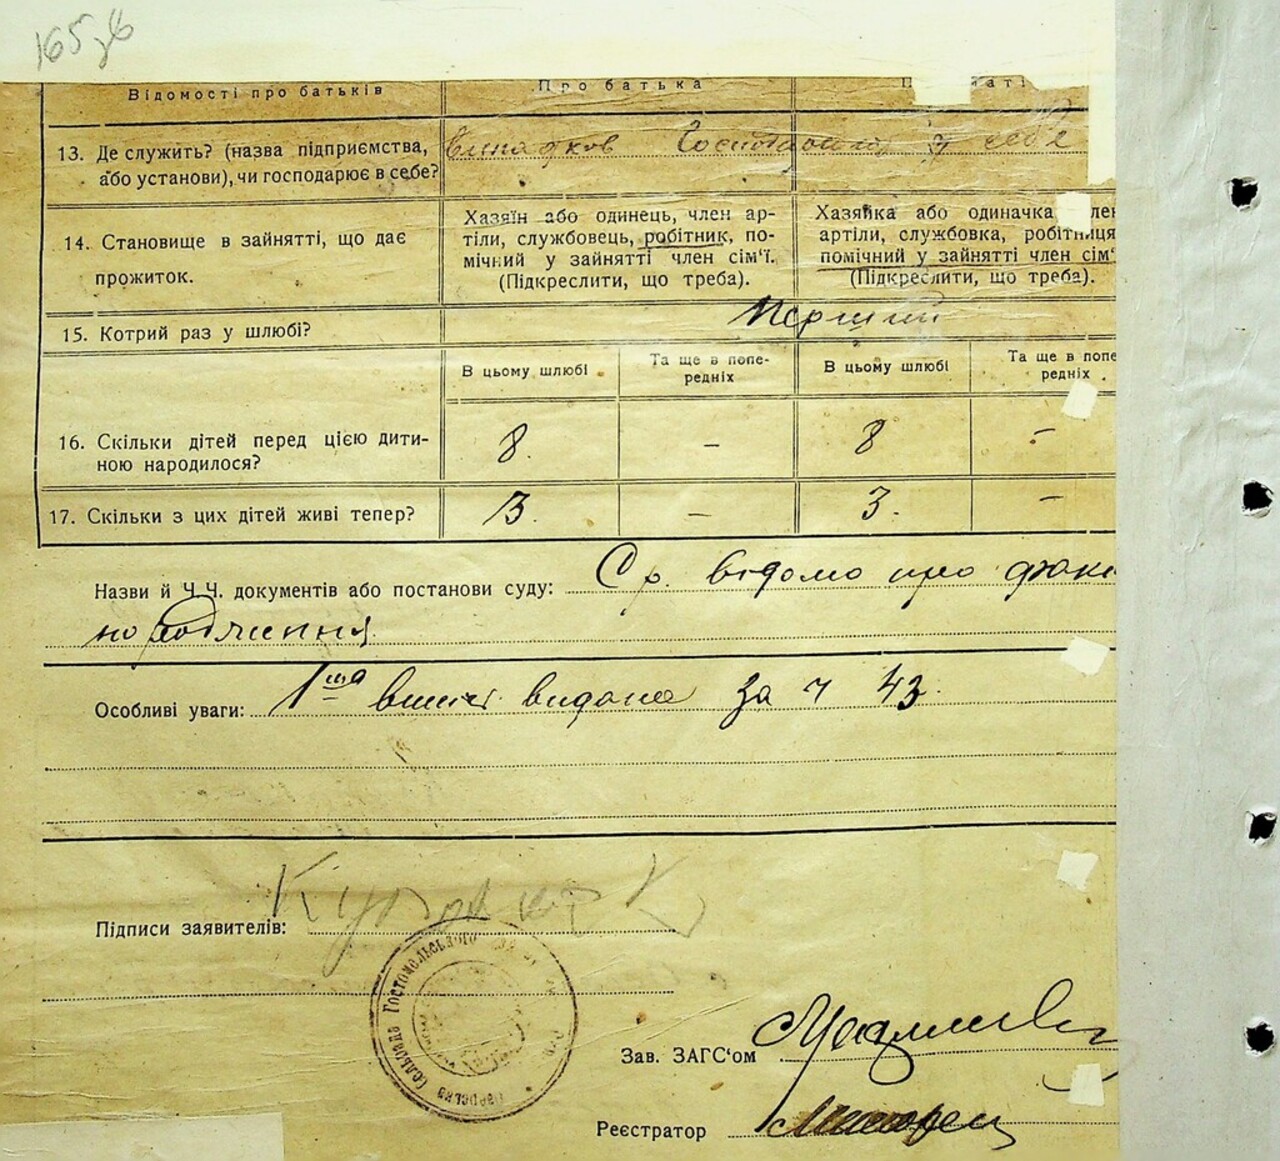 165
Відомості про батьків Про батька
13. Де служить? (назва підприємства, або установи), чи господарює в себе? Господарстві у себе
14. Становище в зайнятті, що дає прожиток.
Хазяїн або одинець, член ар-
тіли, службовець, робітник, по-
мічний у зайнятті член сім'ї.
(Підкреслити, що треба).
Хазяйка або одиначка, член
артіли, службовка, робітниця
помічний у зайнятті член сім'
(Підкреслити, що треба).
15. Котрий раз у шлюбі? Перший
В цьому шлюбі Та ще в попе-
редніх В цьому шлюбі Та ще в попе
редніх
16. Скільки дітей перед цією дити-
ною народилося? 8. – 8 –
17. Скільки з цих дітей живі тепер? 3. – 3. –
Назви й Ч.Ч. документів або постанови суду: відомо про факт
народження
Особливі уваги: 1ша видана за ч 43.
Підписи заявителів:
Гостомельського
Зав. ЗАГС'ом
Реєстратор